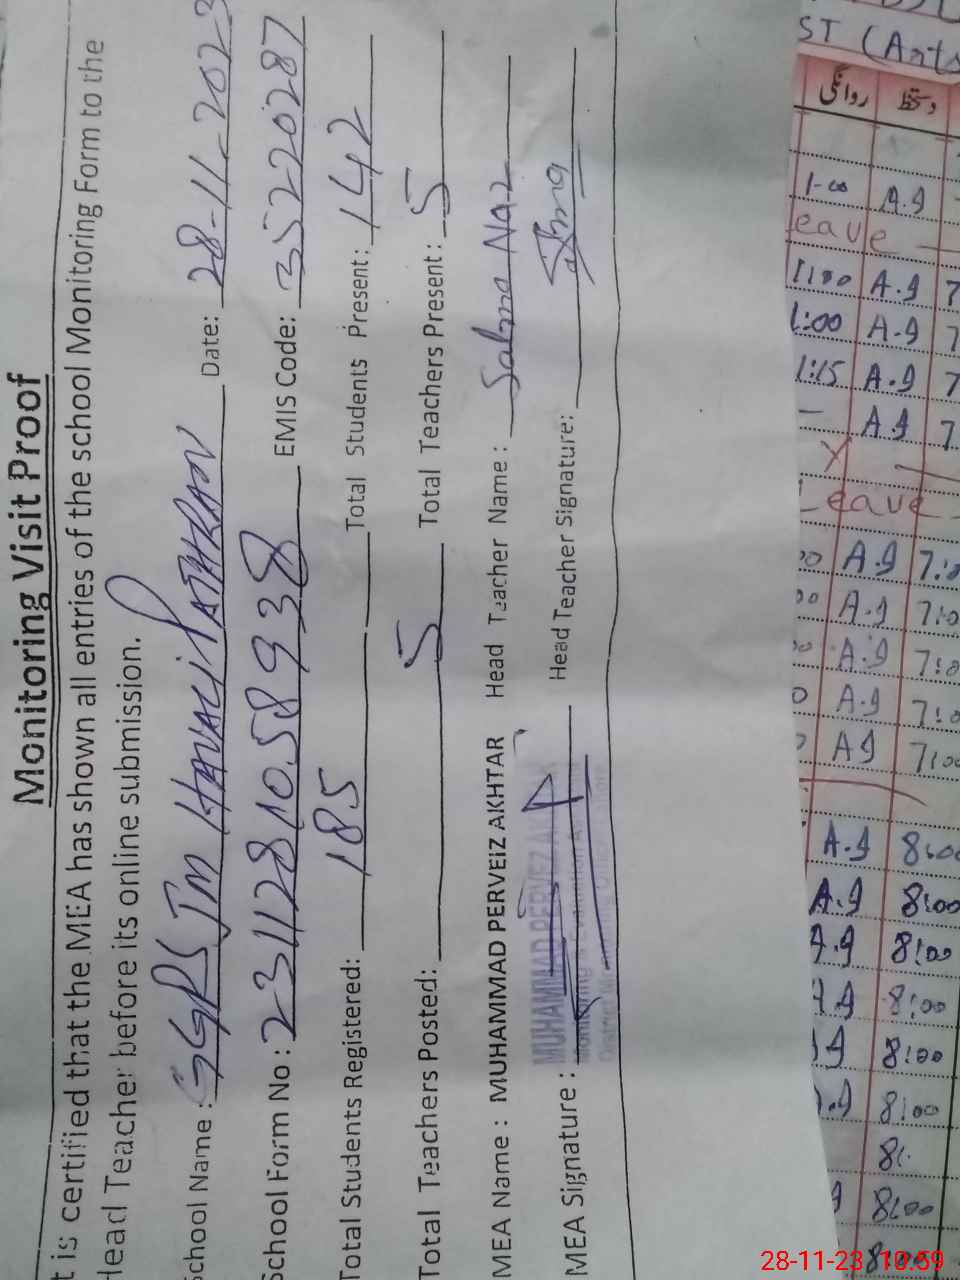 Monitoring Visit Proof
t is certified that the MEA has shown all entries of the school Monitoring Form to the
Head Teacher before its online submission.
School Name : GGPS JM HAVALI PATHRAN Date: 28-11-2023
School Form No : 2311281058938 EMIS Code: 35220287
Total Students Registered: 185 Total Students Present: 142
Total Teachers Posted: 5 Total Teachers Present: 5
MEA Name : MUHAMMAD PERVEIZ AKHTAR Head Teacher Name : Salma Naz
MEA Signature : Head Teacher Signature:
MUHAMMAD PERVEZ
ST (Arts
روانگی دستخط
1-00 A.I
eave
11:00 A.I 7
1:00 A.I 7
1:15 A.I 7
- A.I 7
X
Leave
00 A.I 7:0
00 A.I 7:0
00 A.I 7:0
0 A.I 7:0
A.I 7:00
A.I 8:00
A.I 8:00
A.I 8:00
A.I 8:00
A.I 8:00
A.I 8:00
8:
8:00
8:00
28-11-23 10:59